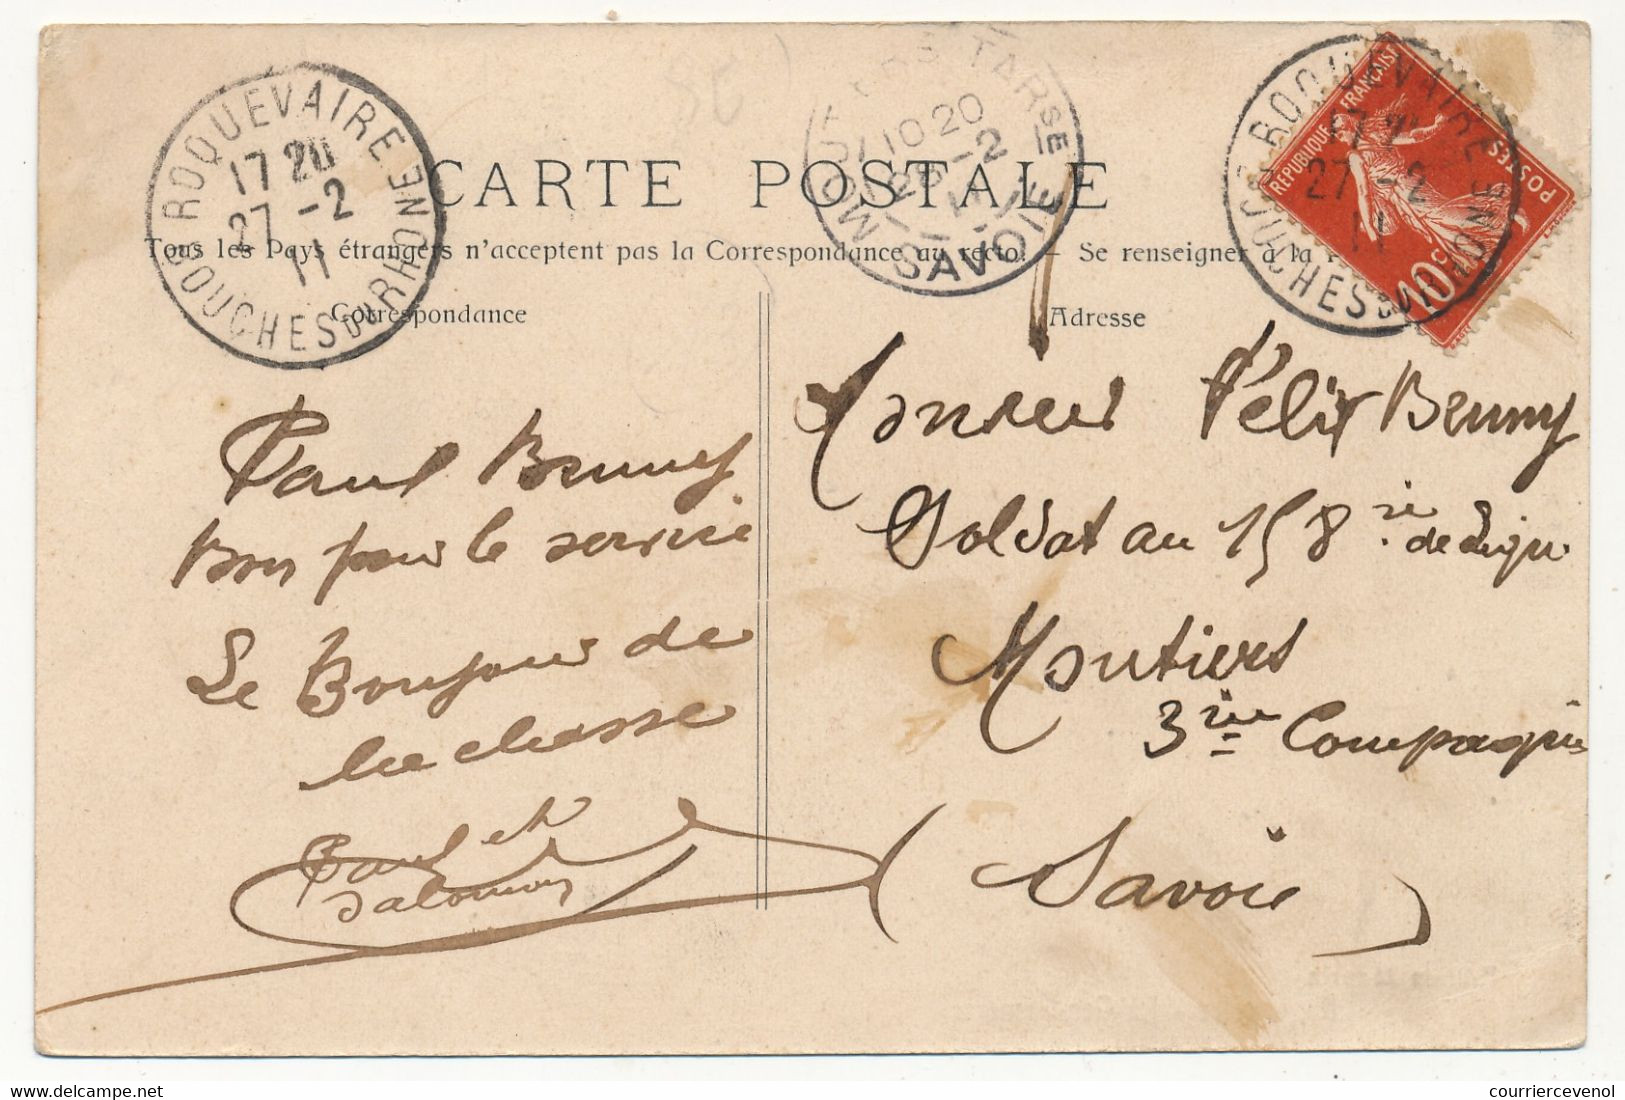 ROQUEVAIRE
17 20
27 -2
11
BOUCHES DU RHONE
MOUTIERS TARSE
10 20
28 -2
11
SAVOIE
ROQUEVAIRE
27 -2
11
BOUCHES DU RHONE
RÉPUBLIQUE FRANÇAISE
POSTES
10c
CARTE POSTALE
Tous les Pays étrangers n'acceptent pas la Correspondance au recto. - Se renseigner à la
Correspondance
Adresse
Paul Benny
Bon pour le service
Le Bonjour de
la classe
Paul et
Salomon
Monsieur Félix Benny
Soldat au 158 de Ligne
Moutiers
3 Compagnie
(Savoie)
courriercevenol